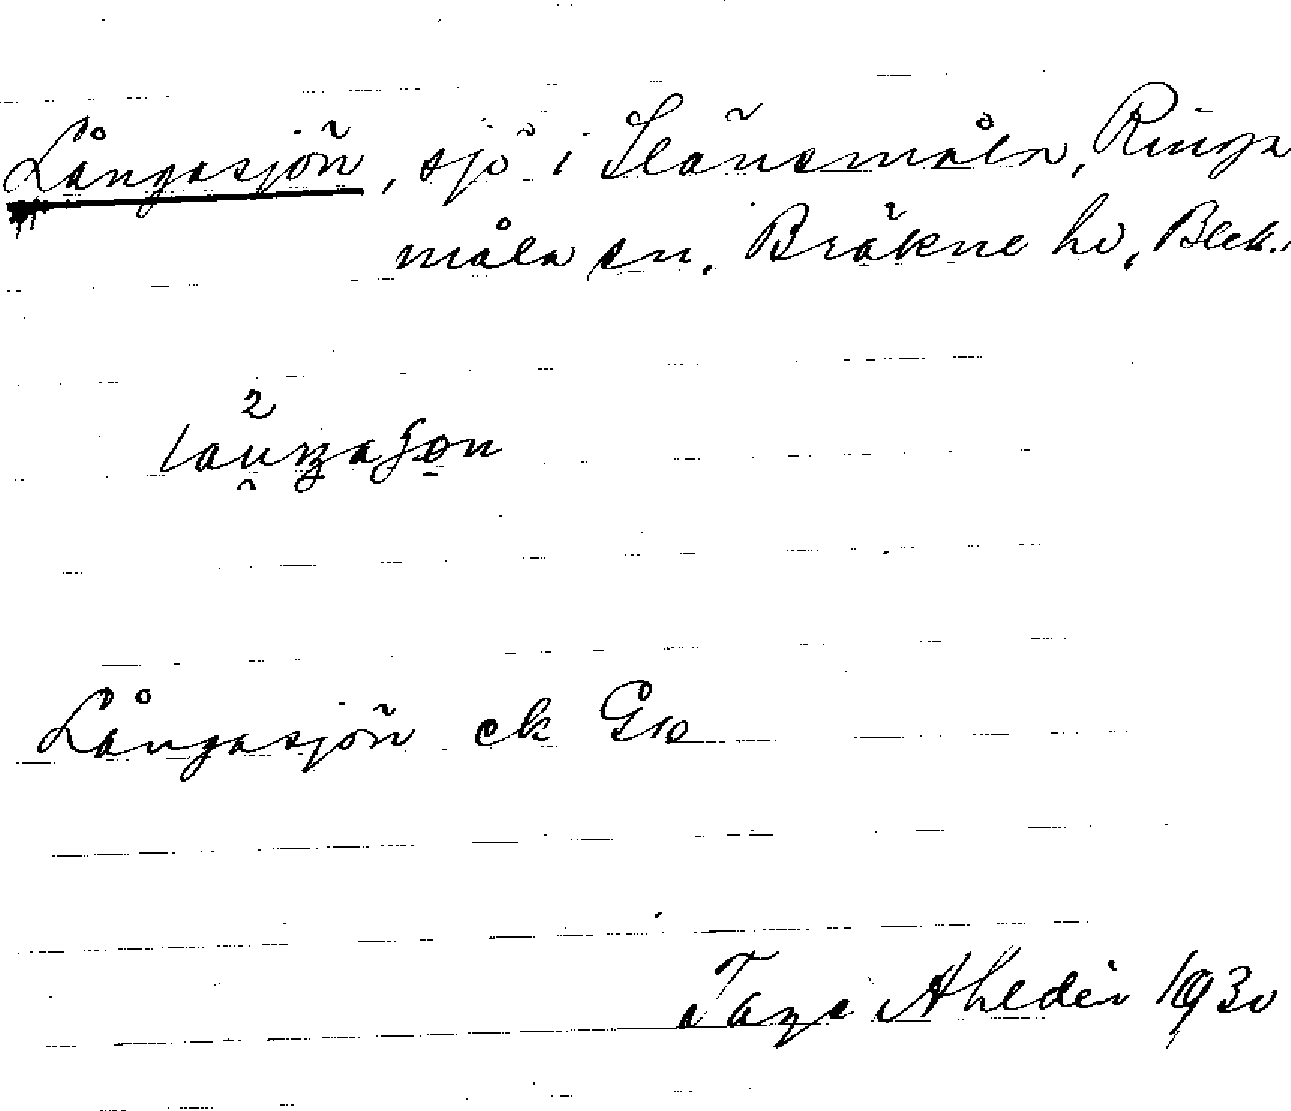 Långasjön, sjö i Slänsmåla, Ringa
måla sn. Bräkne hd, Blek.
Långasjön ek G10
Tage Ahldén 1930